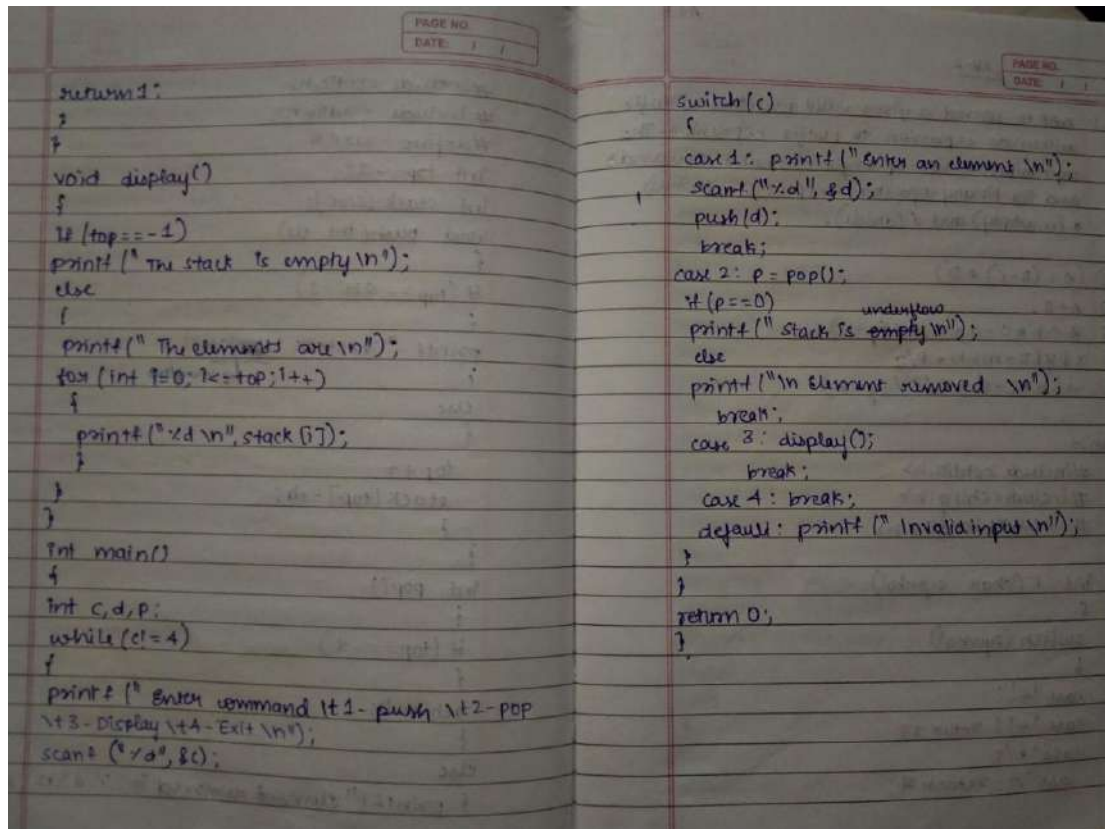 PAGE NO.
DATE: / /
return 1;
}
}
void display()
{
if (top==-1)
printf (" The stack is empty \n");
else
{
printf (" The elements are \n");
for (int i=0; i<=top; i++)
{
printf (" %d \n", stack [i]);
}
}
}
int main()
{
int c, d, p;
while (c!=4)
{
printf (" Enter command \t1- push \t2- pop
\t3- Display \t4- Exit \n");
scanf ("%d", &c);
PAGE NO.
DATE: / /
switch (c)
{
case 1: printf (" Enter an element \n");
scanf ("%d", &d);
push (d);
break;
case 2: p = pop();
if (p==0)
underflow
printf (" Stack is empty \n");
else
printf ("\n Element removed \n");
break;
case 3: display();
break;
case 4: break;
default: printf (" Invalid input \n");
}
}
return 0;
}